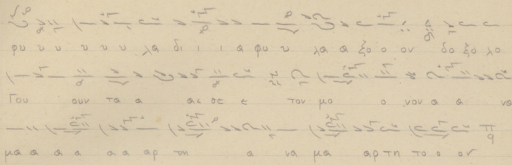 φυ υ υ υ υ υ λα δι ι ι α φυ υ λα α ξο ο ον δο ξο λο
Γου ουν τα α τον μο ο νου α α να
μα α α α α α αρ τη α να μα αρ τη το ο ον